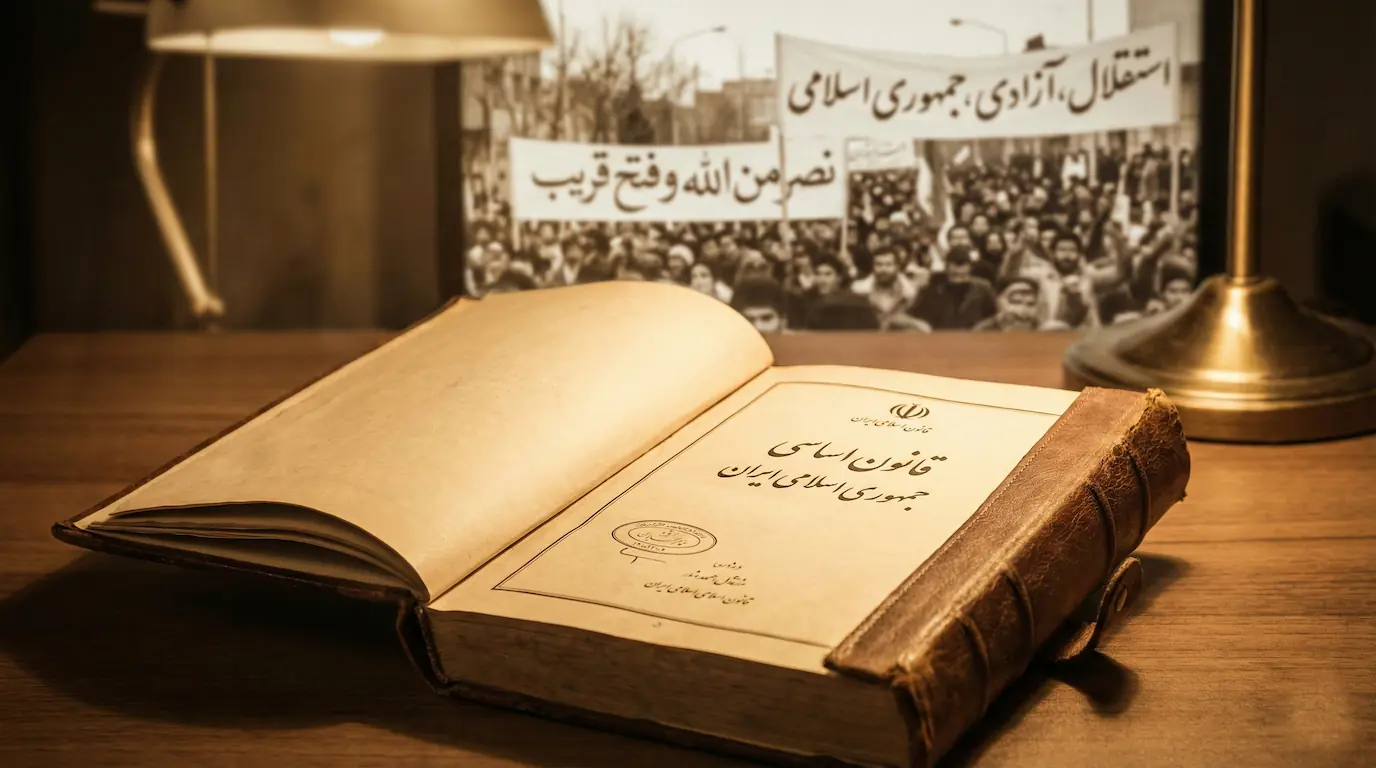 استقلال، آزادی، جمهوری اسلامی
نصر من الله و فتح قریب
قانون اسلامی ایران
قانون اساسی
جمهوری اسلامی ایران
قانون اسلامی اسلامی ایران